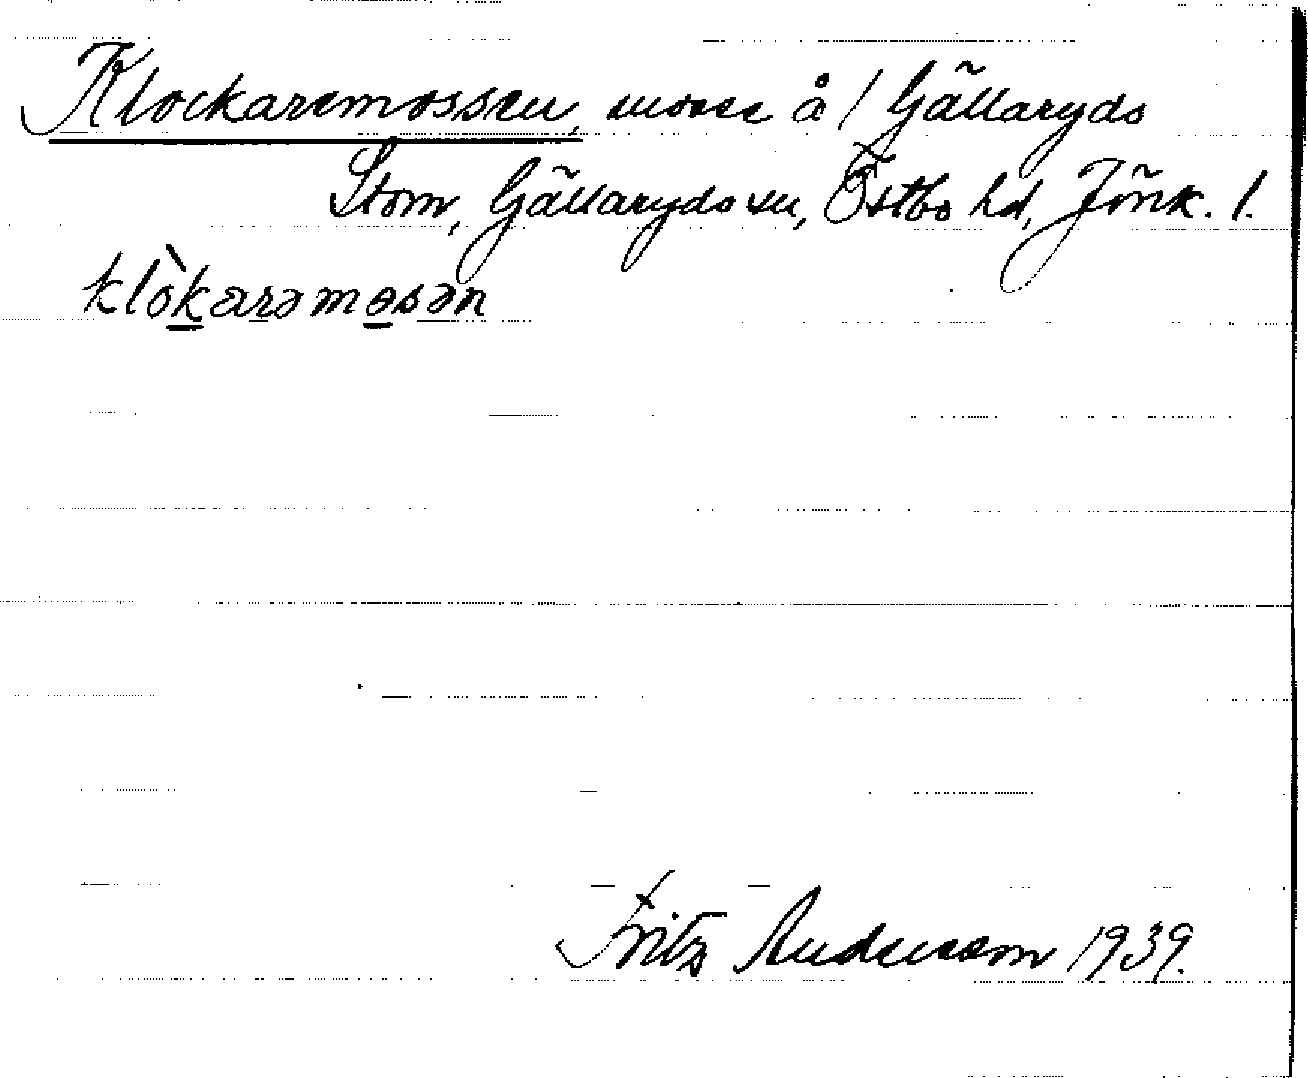 Klockaremossen, mosse å 1 Gällaryds
Stom, Gällaryds sn, Östbo hd, Jönk. l.
klòkarəmɵsən
Fritz Andersson 1939.